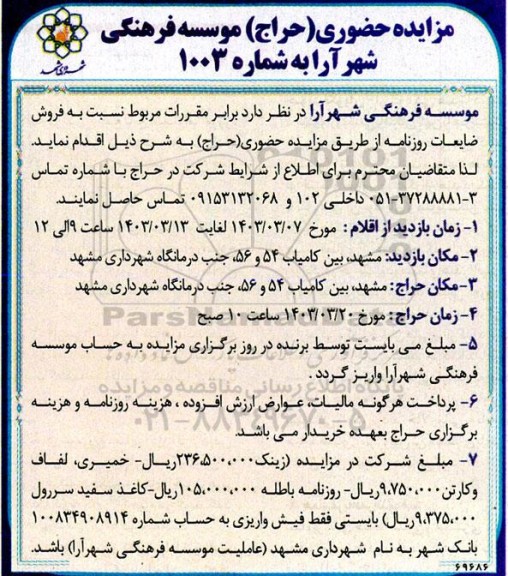 مزایده حضوری(حراج) موسسه فرهنگی
شهر آرا به شماره ۱۰۰۳
موسسه فرهنگی شهرآرا در نظر دارد برابر مقررات مربوط نسبت به فروش
ضایعات روزنامه از طریق مزایده حضوری(حراج) به شرح ذیل اقدام نماید.
لذا متقاضیان محترم برای اطلاع از شرایط شرکت در حراج با شماره تماس
۳-۳۷۲۸۸۸۸۱-۰۵۱ داخلی ۱۰۲ و ۰۹۱۵۳۱۳۲۰۶۸ تماس حاصل نمایند.
۱- زمان بازدید از اقلام : مورخ ۱۴۰۳/۰۳/۰۷ لغایت ۱۴۰۳/۰۳/۱۳ ساعت ۹ الی ۱۲
۲- مکان بازدید: مشهد، بین کامیاب ۵۴ و ۵۶، جنب درمانگاه شهرداری مشهد
۳- مکان حراج: مشهد، بین کامیاب ۵۴ و ۵۶، جنب درمانگاه شهرداری مشهد
۴- زمان حراج: مورخ ۱۴۰۳/۰۳/۲۰ ساعت ۱۰ صبح
ParsNamadData
۵- مبلغ می بایست توسط برنده در روز برگزاری مزایده به حساب موسسه
فرهنگی شهرآرا واریز گردد .
پایگاه اطلاع رسانی مناقصه و مزایده
۶- پرداخت هرگونه مالیات، عوارض ارزش افزوده ، هزینه روزنامه و هزینه
برگزاری حراج بعهده خریدار می باشد.
۰۲۱-۸۸۳۴۹۶۷۰-۵
۷- مبلغ شرکت در مزایده (زینک۲۳۶,۵۰۰,۰۰۰ریال- خمیری، لفاف
وکارتن۹,۷۵۰,۰۰۰ریال- روزنامه باطله ۱۰۵,۰۰۰,۰۰۰ریال-کاغذ سفید سررول
۹,۳۷۵,۰۰۰ریال) بایستی فقط فیش واریزی به حساب شماره ۱۰۰۸۳۴۹۰۸۹۱۴
بانک شهر به نام شهرداری مشهد (عاملیت موسسه فرهنگی شهرآرا) باشد.
۶۹۶۸۶